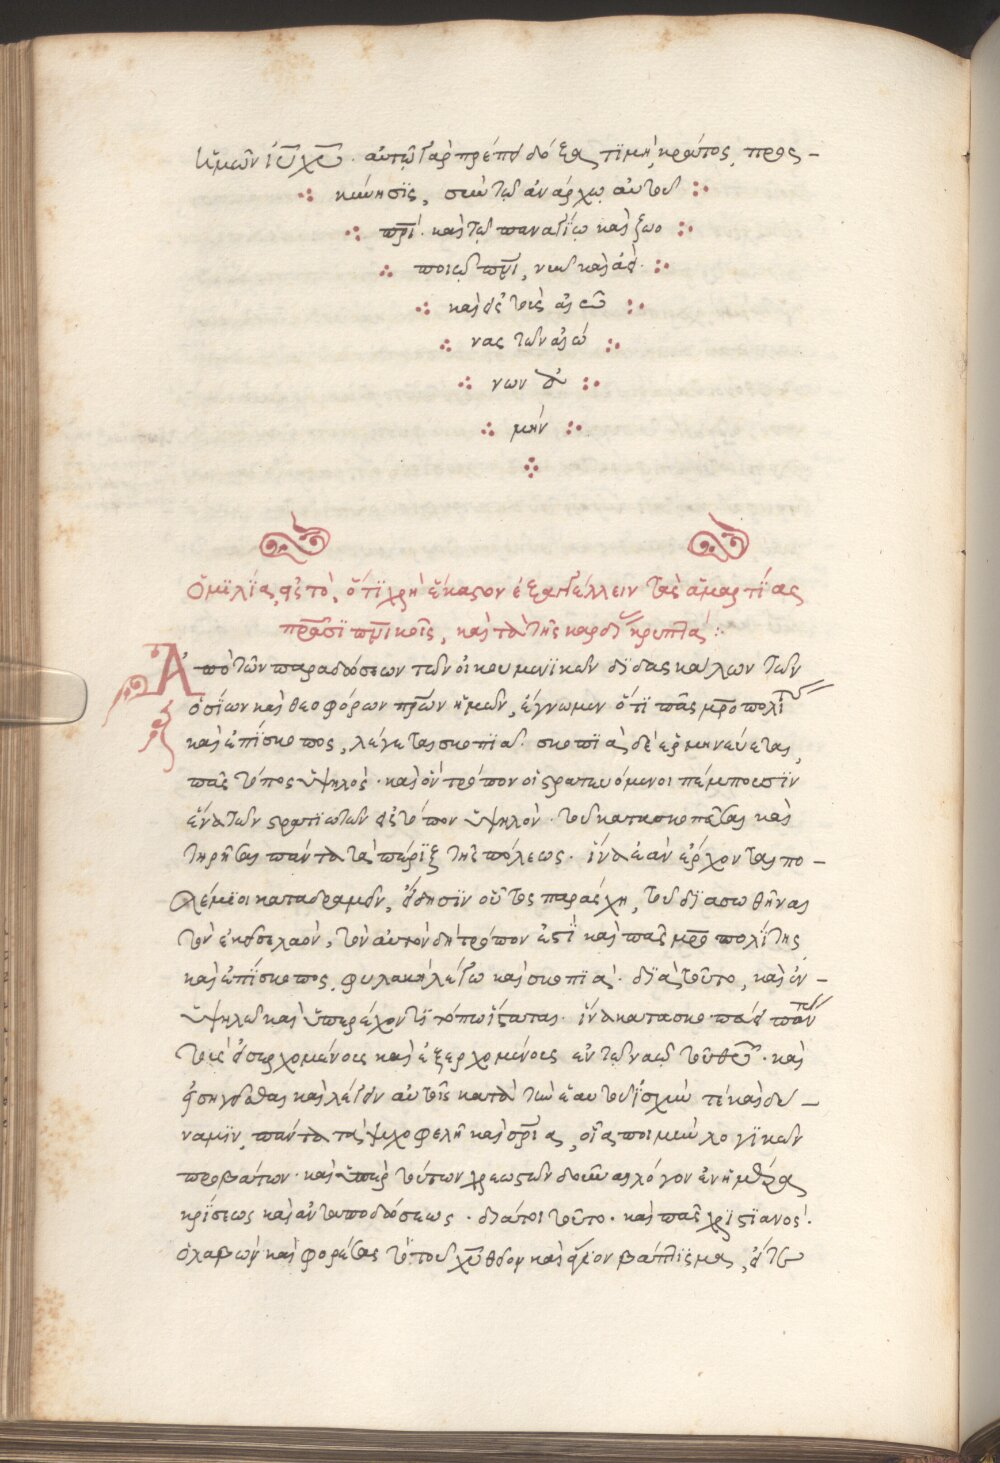 ἡμῶν ἰῦ χῦ. αὐτῷ γὰρ πρέπει δόξα, τϊμὴ, κράτος, προς-
κύνησϊς, σὺν τῷ ἀνάρχῳ αὐτοῦ
πρί. καὶ τῷ παναγΐῳ καὶ ζωο
ποιῷ πνι, νῦν καὶ ἀεὶ.
καὶ εἰς τοὺς αἰῶ
νας τῶν αἰώ
νων ἀ
μήν
Ὁμϊλΐα, εἰς τὸ, ὅτϊ χρὴ ἕκαστον ἐξαγγέλλειν τὰς ἁμαρτΐας
πρασϊ πνικοῖς, καὶ τὰ τῆς καρδΐ κρυπτὰ:
Ἀπὸ τῶν παραδόσεων τῶν οἰκουμενϊκῶν δϊδασκάλων τῶν
ὁσΐων καὶ θεοφόρων πρων ἡμῶν, ἔγνωμεν ὅτϊ πᾶς μροπολΐτ
καὶ ἐπΐσκοπος, λέγεται σκοπϊὰ. σκοπϊὰ δὲ ἑρμηνεύεται,
πᾶς τόπος ὑψηλὸς. καὶ ὃν τρόπον οἱ στρατευόμενοι πέμπουσϊν
ἕνα τῶν στρατϊωτῶν εἰς τόπον ὑψηλὸν. τοῦ κατασκοπεῦσαι καὶ
τηρῆσαι πάντα τὰ πέριξ τῆς πόλεως. ἵνα ἐὰν ἔρχονται πο-
λέμϊοι καταδραμεῖν, εἴδησϊν οὗτος παράσχη, τοῦ δϊασωθῆναι
τὸν ἐκεῖσε λαὸν, τὸν αὐτὸν δὴ τρόπον ἐστΐ καὶ πᾶς μροπολΐτης
καὶ ἐπΐσκοπος, φυλακὴ λέγω καὶ σκοπϊὰ. δϊὰ τοῦτο, καὶ ἐν-
ὑψηλῶ καὶ ὑπερέχοντϊ τόπω ἵσταται. ἵνα κατασκοπεύει πάν
τοὺς εἰσερχομένους καὶ ἐξερχομένους ἐν τῷ ναῷ τοῦ θυ. καὶ
εἰσηγεῖσθαι καὶ λέγειν αὐτοῖς κατὰ τὴν ἑαυτοῦ ἰσχὺν τὲ καὶ δύ-
ναμϊν, πάντα τὰ ψυχοφελῆ καὶ σρία, οἷα ποιμὴν λογϊκῶν
προβάτων. καὶ ὑπὲρ τούτων χρεωστῶν δοῦναι λόγον ἐν ἡμέρα
κρΐσεως καὶ ἀνταποδόσεως. δϊά τοι τοῦτο. καὶ πᾶς χρϊστϊανὸς.
ὁ λαβὼν καὶ φορέσας τὸ τοῦ χυ θεῖον καὶ ἅγϊον βάπτϊσμα,